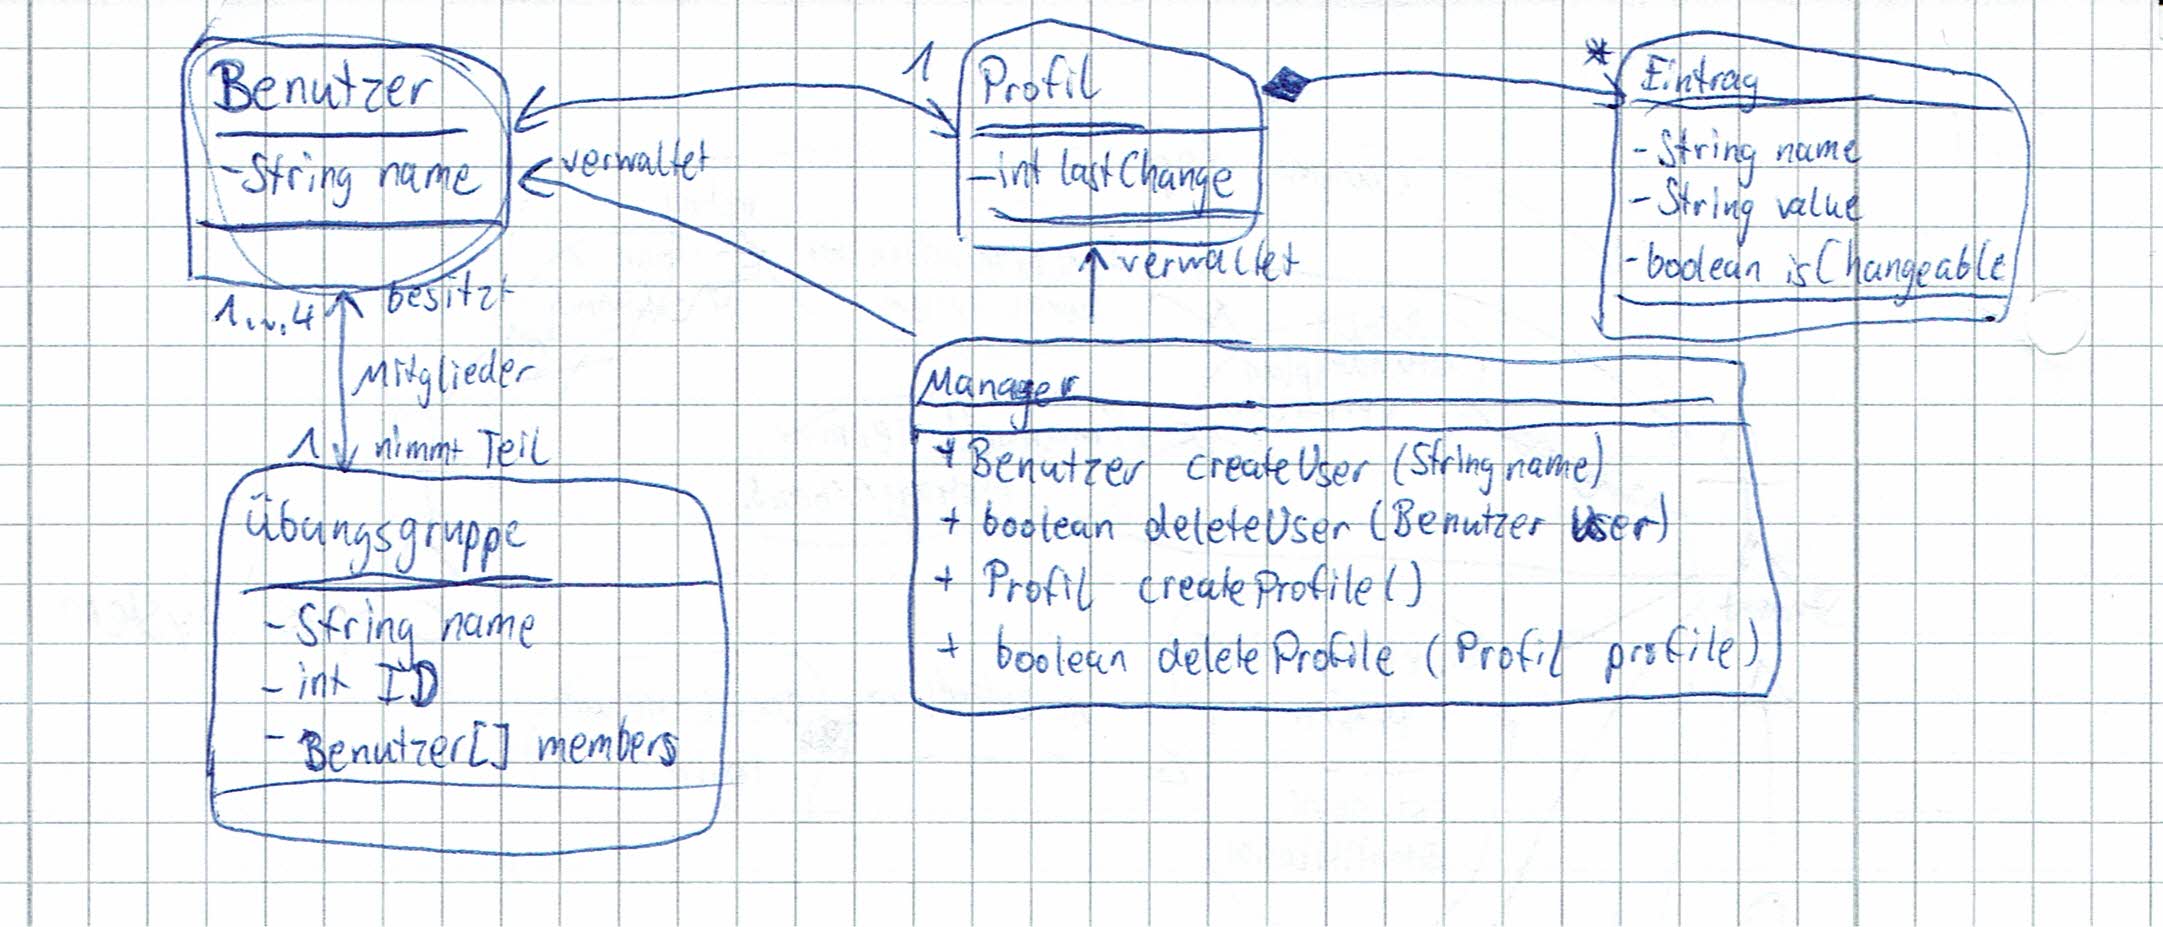 Benutzer
- String name
1
Profil
- int lastChange
*
Eintrag
- String name
- String value
- boolean isChangeable
verwaltet
verwaltet
1...4
besitzt
Mitglieder
1
nimmt Teil
Übungsgruppe
- String name
- int ID
- Benutzer[] members
Manager
+ Benutzer createUser (String name)
+ boolean deleteUser (Benutzer user)
+ Profil createProfile()
+ boolean deleteProfile (Profil profile)